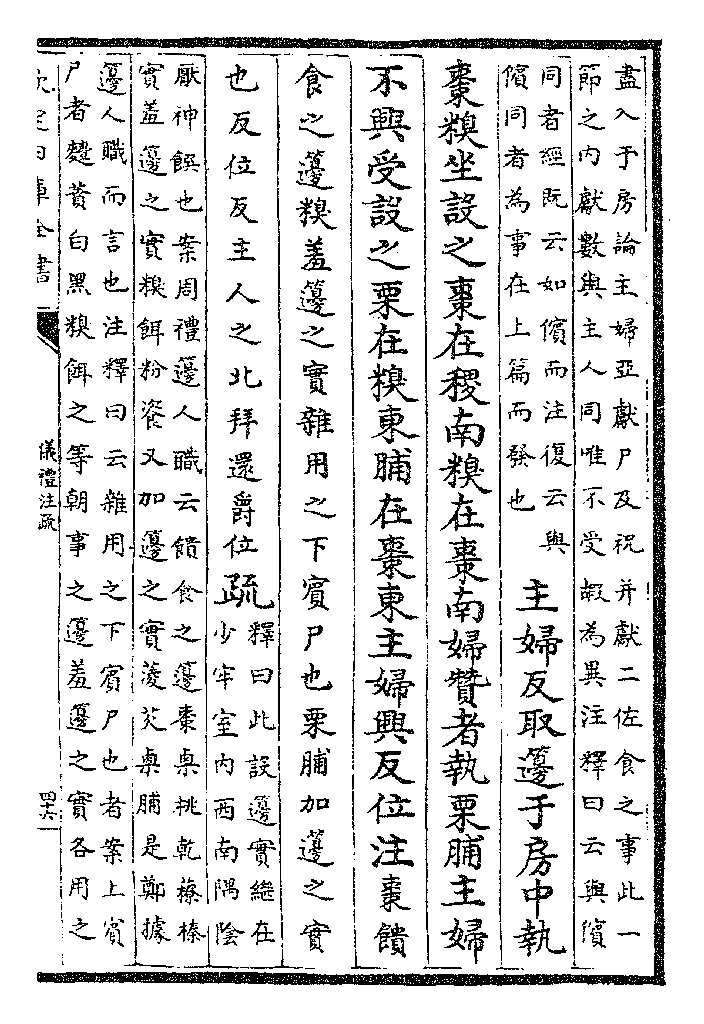 盡入于房論主婦亞獻尸及祝并獻二佐食之事此一
節之内獻數與主人同唯不受嘏為異注釋曰云與儐
同者經既云如儐而注復云與
儐同者為事在上篇而發也
主婦反取籩于房中執
棗糗坐設之棗在稷南糗在棗南婦贊者執栗脯主婦
不興受設之栗在糗東脯在棗東主婦興反位注棗饋
食之籩糗羞籩之實雜用之下賓尸也栗脯加籩之實
也反位反主人之北拜還爵位疏
釋曰此設籩實繼在
少牢室内西南隅陰
厭神饌也案周禮籩人職云饋食之籩棗㮚桃乾䕩榛
實羞籩之實糗餌粉餈又加籩之實蔆芡㮚脯是鄭據
籩人職而言也注釋曰云雜用之下賓尸也者案上賓
尸者麷蕡白黑糗餌之等朝事之籩羞籩之實各用之
欽定四庫全書
儀禮注疏
四六